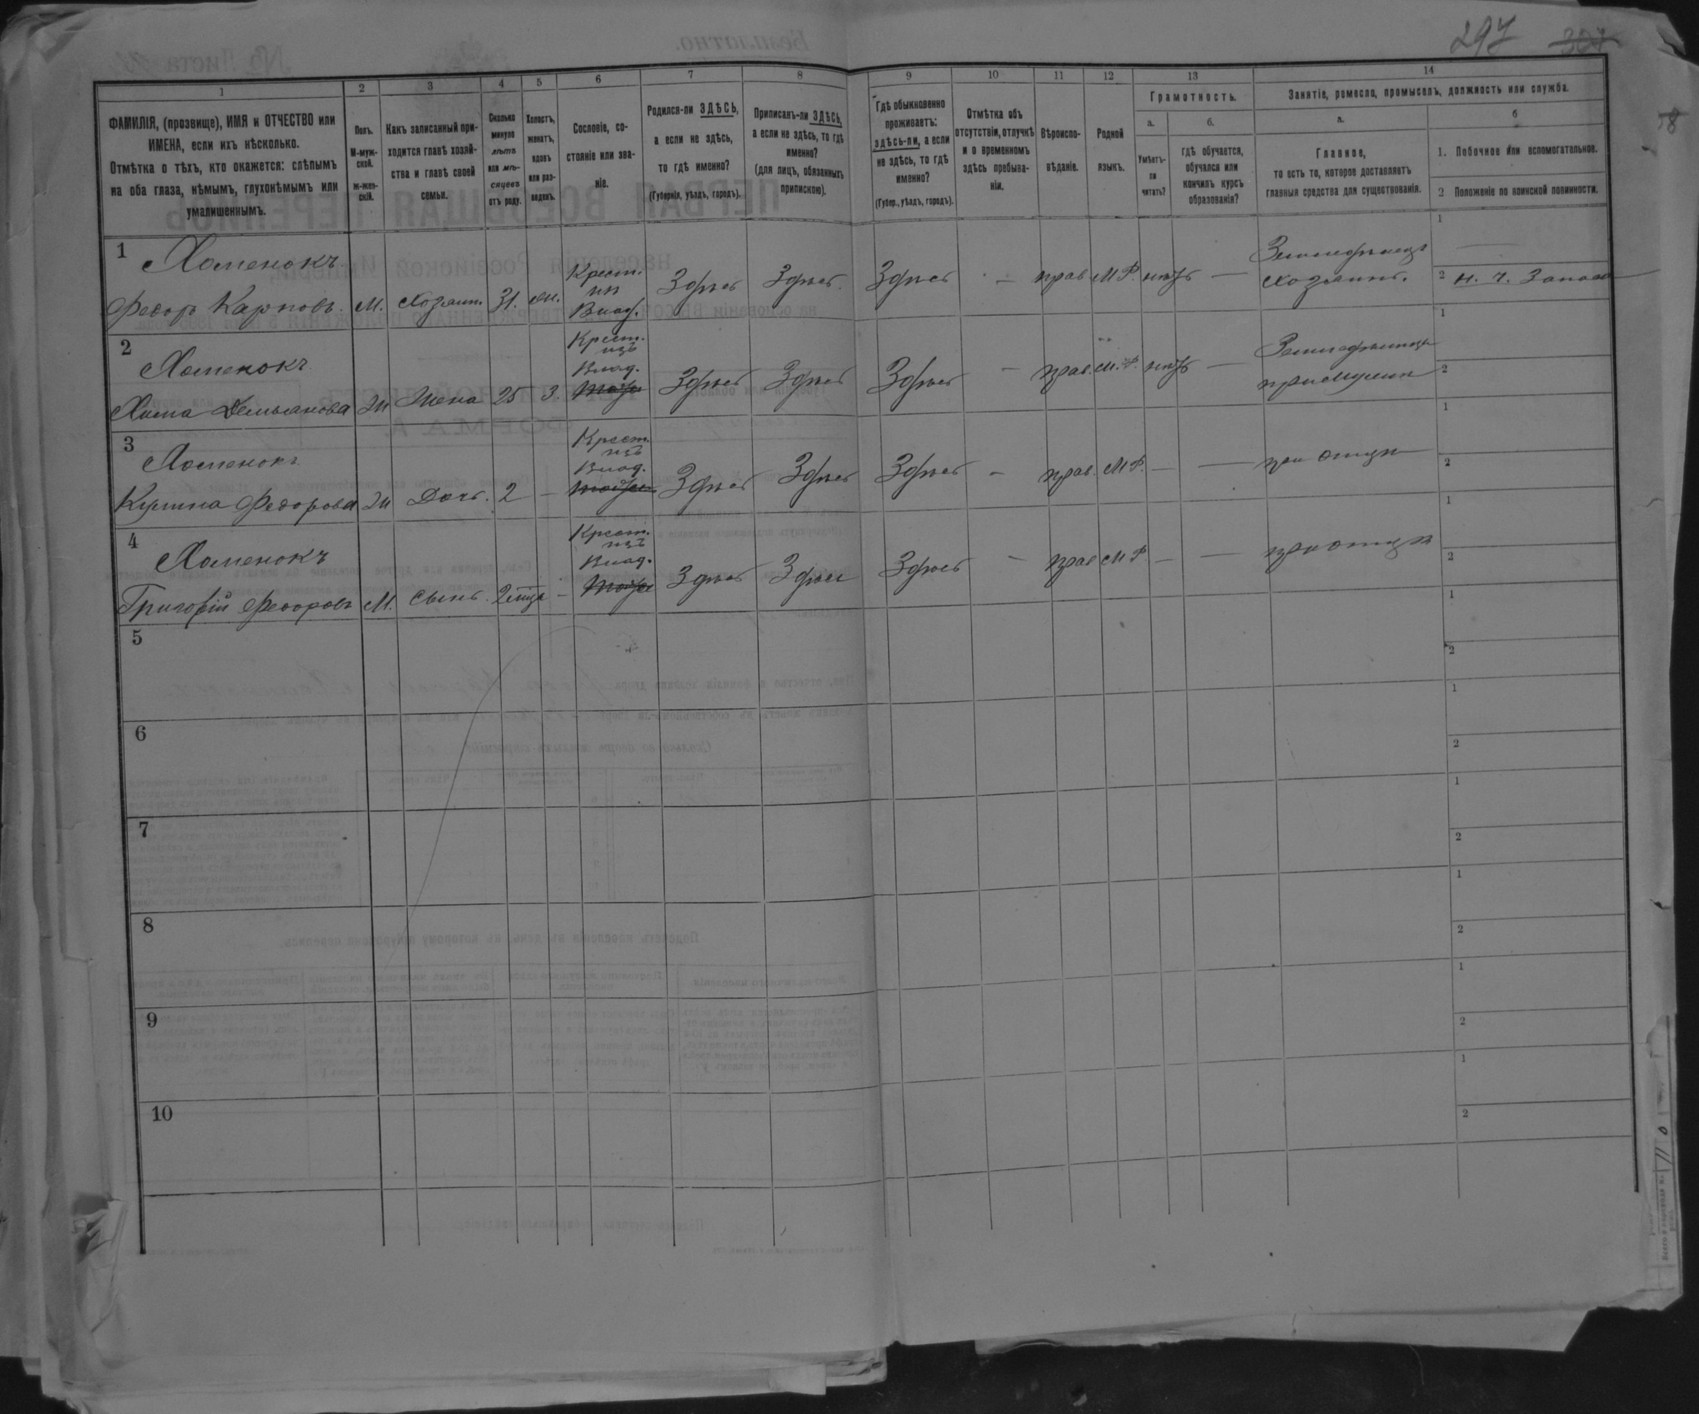 297 307
58
1 2 3 4 5 6 7 8 9 10 11 12 13 14
ФАМИЛІЯ, (прозвище), ИМЯ и ОТЧЕСТВО или
ИМЕНА, если ихъ нѣсколько.
Отмѣтка о тѣхъ, кто окажется: слѣпымъ
на оба глаза, нѣмымъ, глухонѣмымъ или
умалишеннымъ.
Полъ.
М-муж-
ской.
ж-жен-
скій.
Какъ записанный при-
ходится главѣ хозяй-
ства и главѣ своей
семьи.
Сколько
минуло
лѣтъ
или мѣ-
сяцевъ
отъ роду.
Холостъ,
женатъ,
вдовъ
или раз-
веденъ.
Сословіе, со-
стояніе или зва-
ніе.
Родился-ли ЗДѢСЬ,
а если не здѣсь,
то гдѣ именно?
(Губернія, уѣздъ, городъ).
Приписанъ-ли ЗДѢСЬ,
а если не здѣсь, то гдѣ
именно?
(для лицъ, обязанныхъ
припискою).
Гдѣ обыкновенно
проживаетъ:
здѣсь-ли, а если
не здѣсь, то гдѣ
именно?
(Губер., уѣздъ, городъ).
Отмѣтка объ
отсутствіи, отлучкѣ
и о временномъ
здѣсь пребыва-
ніи.
Вѣроиспо-
вѣданіе.
Родной
языкъ.
Грамотность.
а.
Умѣетъ-
ли
читать?
б.
гдѣ обучается,
обучался или
кончилъ курсъ
образованія?
Занятіе, ремесло, промыселъ, должность или служба.
а.
Главное,
то есть то, которое доставляетъ
главныя средства для существованія.
б
1. Побочное или вспомогательное.
2 Положеніе по воинской повинности.
1
Хоменокъ
Федоръ Карповъ. М. хозяинъ. 31. жн. Крест. ип Влад. Здѣсь Здѣсь. Здѣсь - прав М.Р. нѣтъ — Земледѣлецъ хозяинъ.
1 —
2 н. ч. Запаса
2
Хоменокъ
Хима Демьянова Ж Жена 25 З. Крест. изъ Влад. Здѣсь Здѣсь Здѣсь - прав. М.Р. нѣтъ — Земледѣлица при мужѣ
1
2
3
Хоменокъ
Кулина Федорова Ж Дочь. 2 - Крест. изъ Влад. Здѣсь Здѣсь Здѣсь - прав. М.Р. — — при отцѣ
1
2
4
Хоменокъ
Григорій Федоровъ М. Сынъ. 2 мца - Крест. изъ Влад. Здѣсь Здѣсь Здѣсь - прав М.Р. — — при отцѣ
1
2
5
1
2
6
1
2
7
1
2
8
1
2
9
1
2
10
1
2